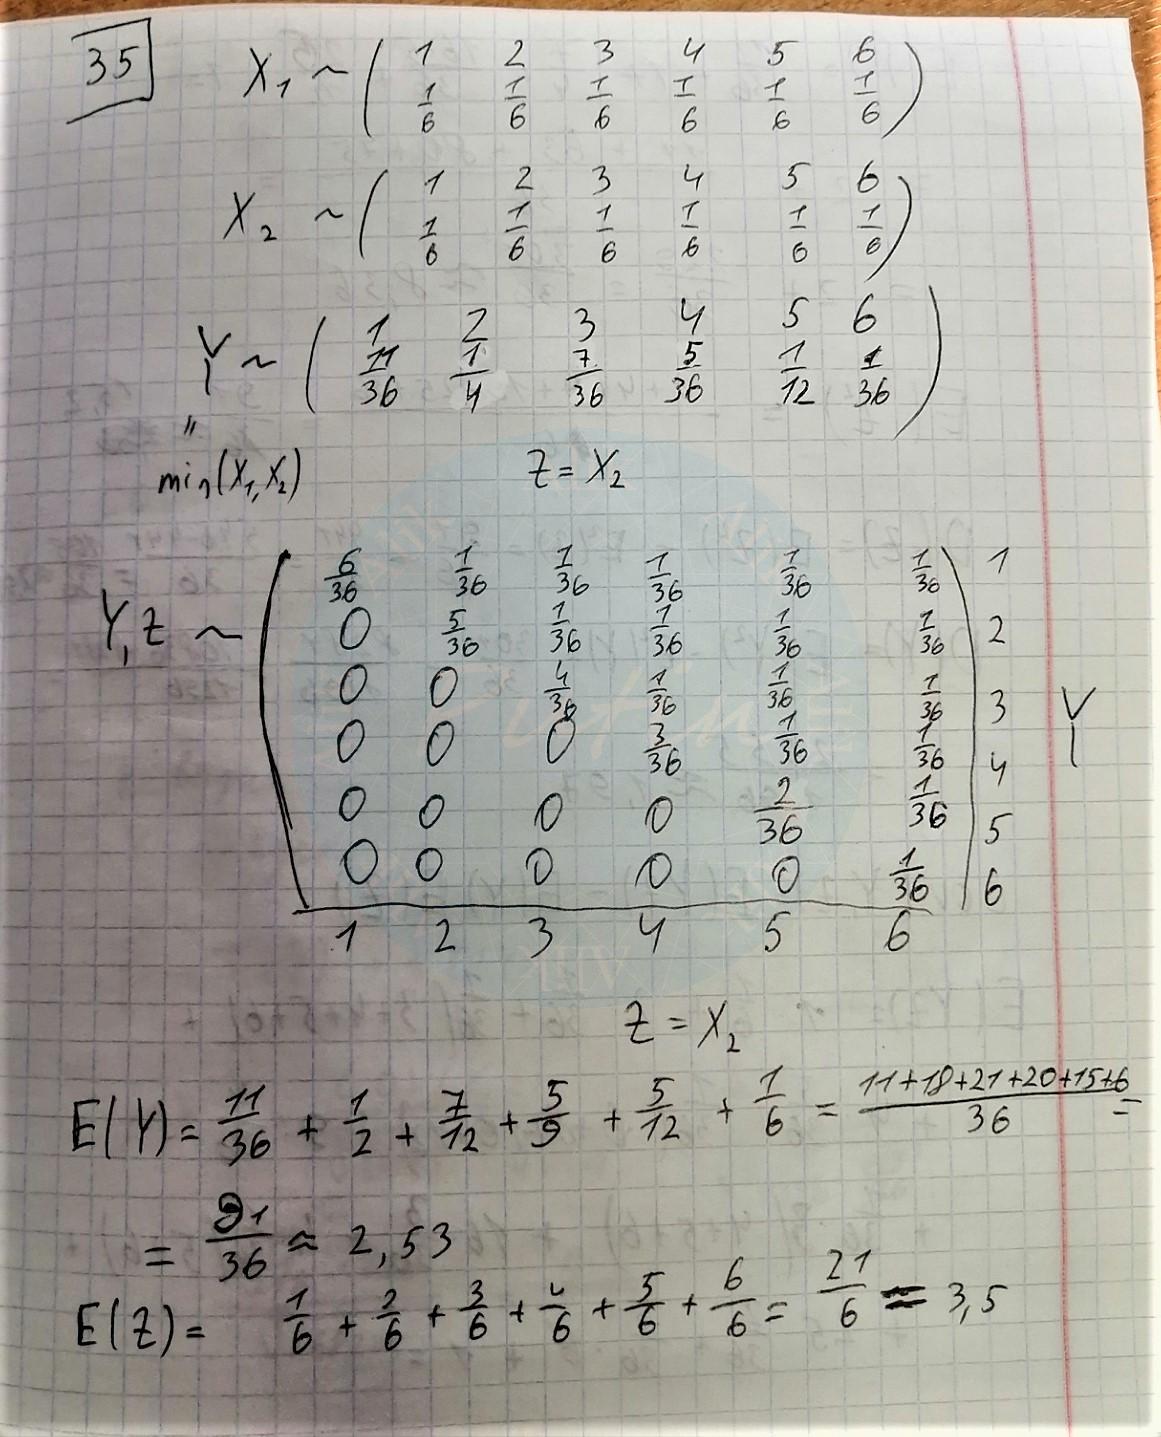 35
X₁ ~ ( 1 2 3 4 5 6
1/6 1/6 1/6 1/6 1/6 1/6 )
X₂ ~ ( 1 2 3 4 5 6
1/6 1/6 1/6 1/6 1/6 1/6 )
Y ~ ( 1 2 3 4 5 6
11/36 1/4 7/36 5/36 1/12 1/36 )
"
min(X₁,X₂) Z = X₂
6/36 1/36 1/36 1/36 1/36 1/36 1
Y,Z ~ ( 0 5/36 1/36 1/36 1/36 1/36 ) 2
0 0 4/36 1/36 1/36 1/36 3 Y
0 0 0 3/36 1/36 1/36 4
0 0 0 0 2/36 1/36 5
0 0 0 0 0 1/36 6
1 2 3 4 5 6
Z = X₂
E(Y) = 11/36 + 1/2 + 7/12 + 5/9 + 5/12 + 1/6 = (11+18+21+20+15+6)/36 =
= 91/36 ≈ 2,53
E(Z) = 1/6 + 2/6 + 3/6 + 4/6 + 5/6 + 6/6 = 21/6 = 3,5